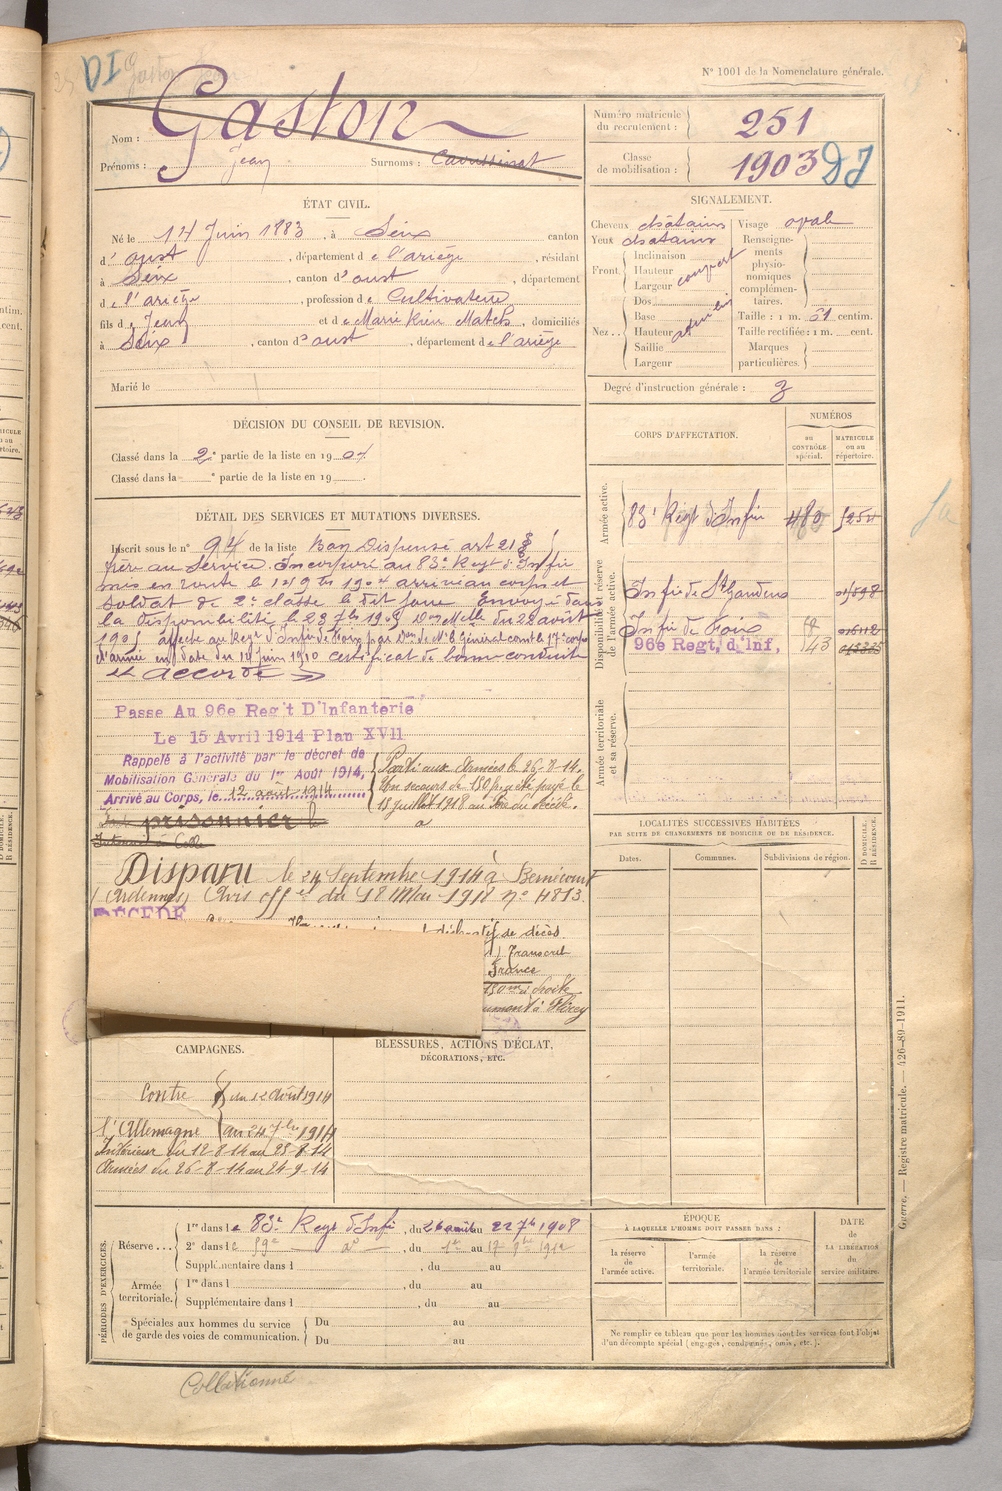 DI
Gaston Jean
N° 1001 de la Nomenclature générale.
Nom : Gaston
Prénoms : Jean Surnoms : Caussinat
Numéro matricule du recrutement : 251
Classe de mobilisation : 1903 DI
ÉTAT CIVIL.
Né le 14 Juin 1883, à Seix canton
d'oust, département de l'ariège, résidant
à Seix, canton d'oust, département
de l'ariège, profession de Cultivateur
fils de Jean et de Marie Rieu Match, domiciliés
à Seix, canton d'oust, département de l'ariège
Marié le
SIGNALEMENT.
Cheveux chatains
Yeux chatains
Front. Inclinaison
Hauteur
Largeur
couvert
Nez. Dos
Base
Hauteur
Saillie
Largeur
Visage oval
Renseignements physionomiques complémentaires.
Taille : 1 m. 61 centim.
Taille rectifiée : 1 m. cent.
Marques particulières.
Degré d'instruction générale : 3
DÉCISION DU CONSEIL DE REVISION.
Classé dans la 2e partie de la liste en 1904
Classé dans la e partie de la liste en 19
CORPS D'AFFECTATION.
NUMÉROS
au CONTRÔLE spécial.
MATRICULE ou au répertoire.
Armée active.
83e Régt d'Infie 480 5251
Disponibilité et réserve de l'armée active.
Infie de St Gaudens
Infie de Foix
96e Regt. d'Inf,
Armée territoriale et sa réserve.
DÉTAIL DES SERVICES ET MUTATIONS DIVERSES.
Inscrit sous le n° 94 de la liste Bon Dispensé art 21 §
frère au Service. Incorporé au 83e Régt d'Infie
mis en route le 14 9bre 1904 arrivé au corps et
soldat de 2e classe le dit jour Envoyé dans
la disponibilité le 23 7bre 1905 Don Melle du 22 août
1905 affecté au Regt d'Infie de Foix par Don de Mr le Général comt le 17e corps
d'armée en date du 14 juin 1910 certificat de bonne conduite
accordé
Passe Au 96e Reg't D'Infanterie
Le 15 Avril 1914 Plan XVII
Rappelé à l'activité par le décret de
Mobilisation Générale du 1er Août 1914,
Arrivé au Corps, le 12 août 1914
Parti aux Armées le 26-8-14.
Un secours de 150f. a été payé le
18 juillet 1918 au Père du décédé.
prisonnier le
Disparu le 24 Septembre 1914 à Bernécourt
(Ardennes) Avis offel du 18 Mai 1918 n° H813.
DÉCÉDÉ
de décès
Transcrit
France
LOCALITÉS SUCCESSIVES HABITÉES
PAR SUITE DE CHANGEMENTS DE DOMICILE OU DE RÉSIDENCE.
Dates. Communes. Subdivisions de région. D DOMICILE. R RÉSIDENCE.
CAMPAGNES.
Contre
l'Allemagne
du 12 Août 1914
au 24 7bre 1914
Intérieur du 12-8-14 au 25-8-14
Armées du 26-8-14 au 24-9-14
BLESSURES, ACTIONS D'ÉCLAT,
DÉCORATIONS, ETC.
PÉRIODES D'EXERCICES.
Réserve... 1re dans le 83e Régt d'Infie, du 26 août au 22 7bre 1908
2e dans le 59e do, du 1er au 17 9bre 1912
Supplémentaire dans l , du au
Armée territoriale. 1re dans l , du au
Supplémentaire dans l , du au
Spéciales aux hommes du service de garde des voies de communication. Du au
Du au
ÉPOQUE
À LAQUELLE L'HOMME DOIT PASSER DANS :
la réserve de l'armée active.
l'armée territoriale.
la réserve de l'armée territoriale
DATE DE LA LIBÉRATION du service militaire.
Ne remplir ce tableau que pour les hommes dont les services font l'objet
d'un décompte spécial (engagés, condamnés, omis, etc.).
Guerre. — Registre matricule. — 426-89-1911.
Collationné